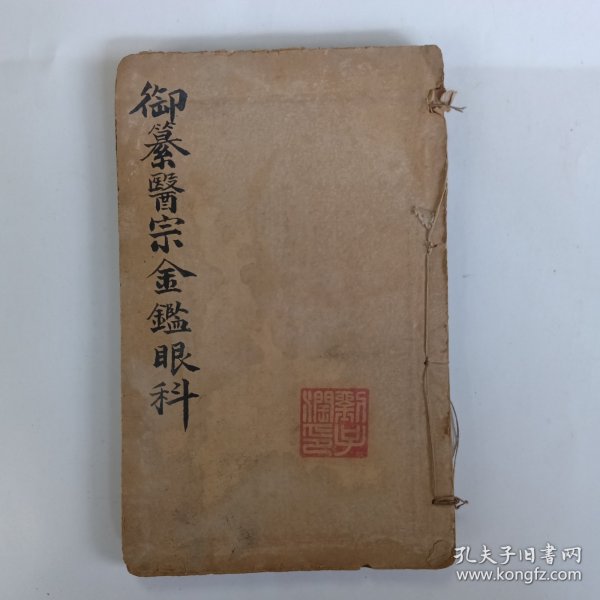 御纂醫宗金鑑眼科
孔夫子旧书网
www.kongfz.com